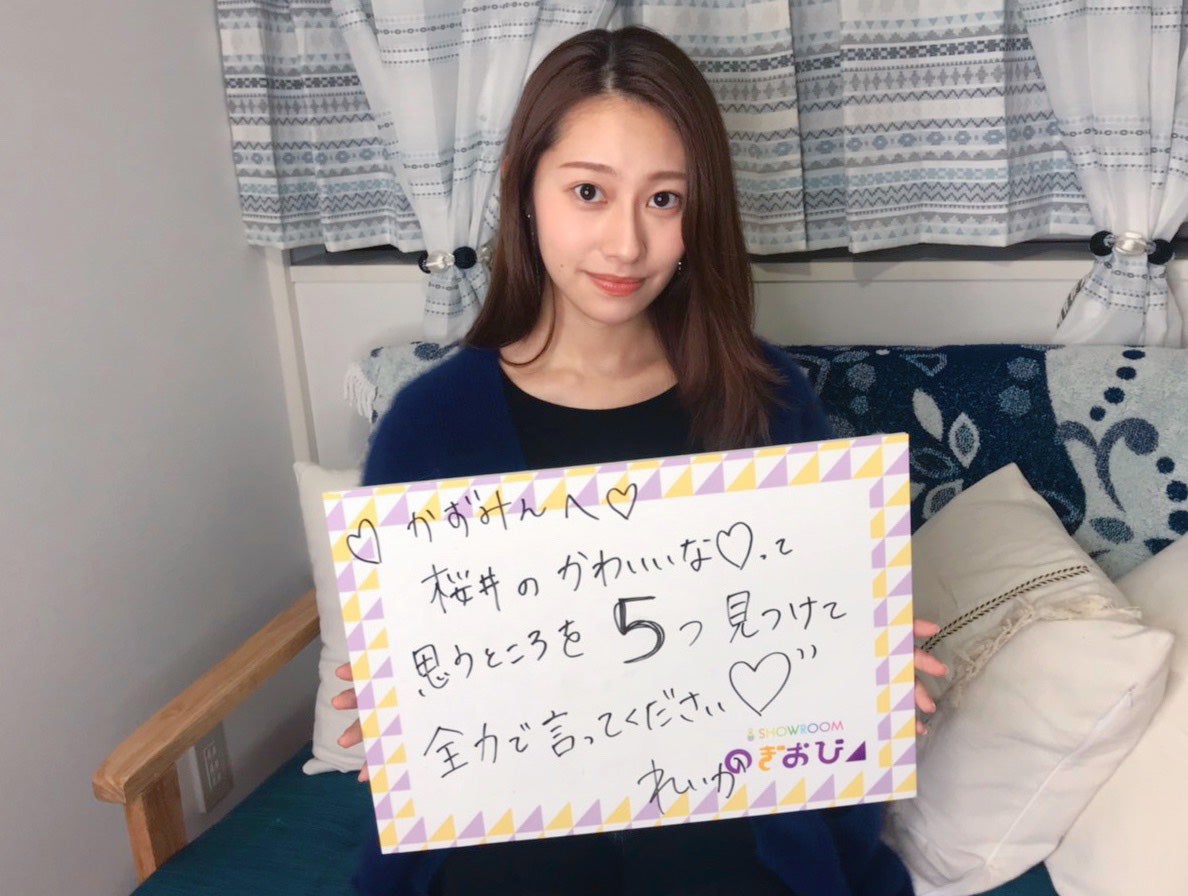 ♡かずみんへ♡
桜井のかわいいな♡って
思うところを5つ見つけて
全力で言ってください♡"
SHOWROOM
のぎおび
れいか